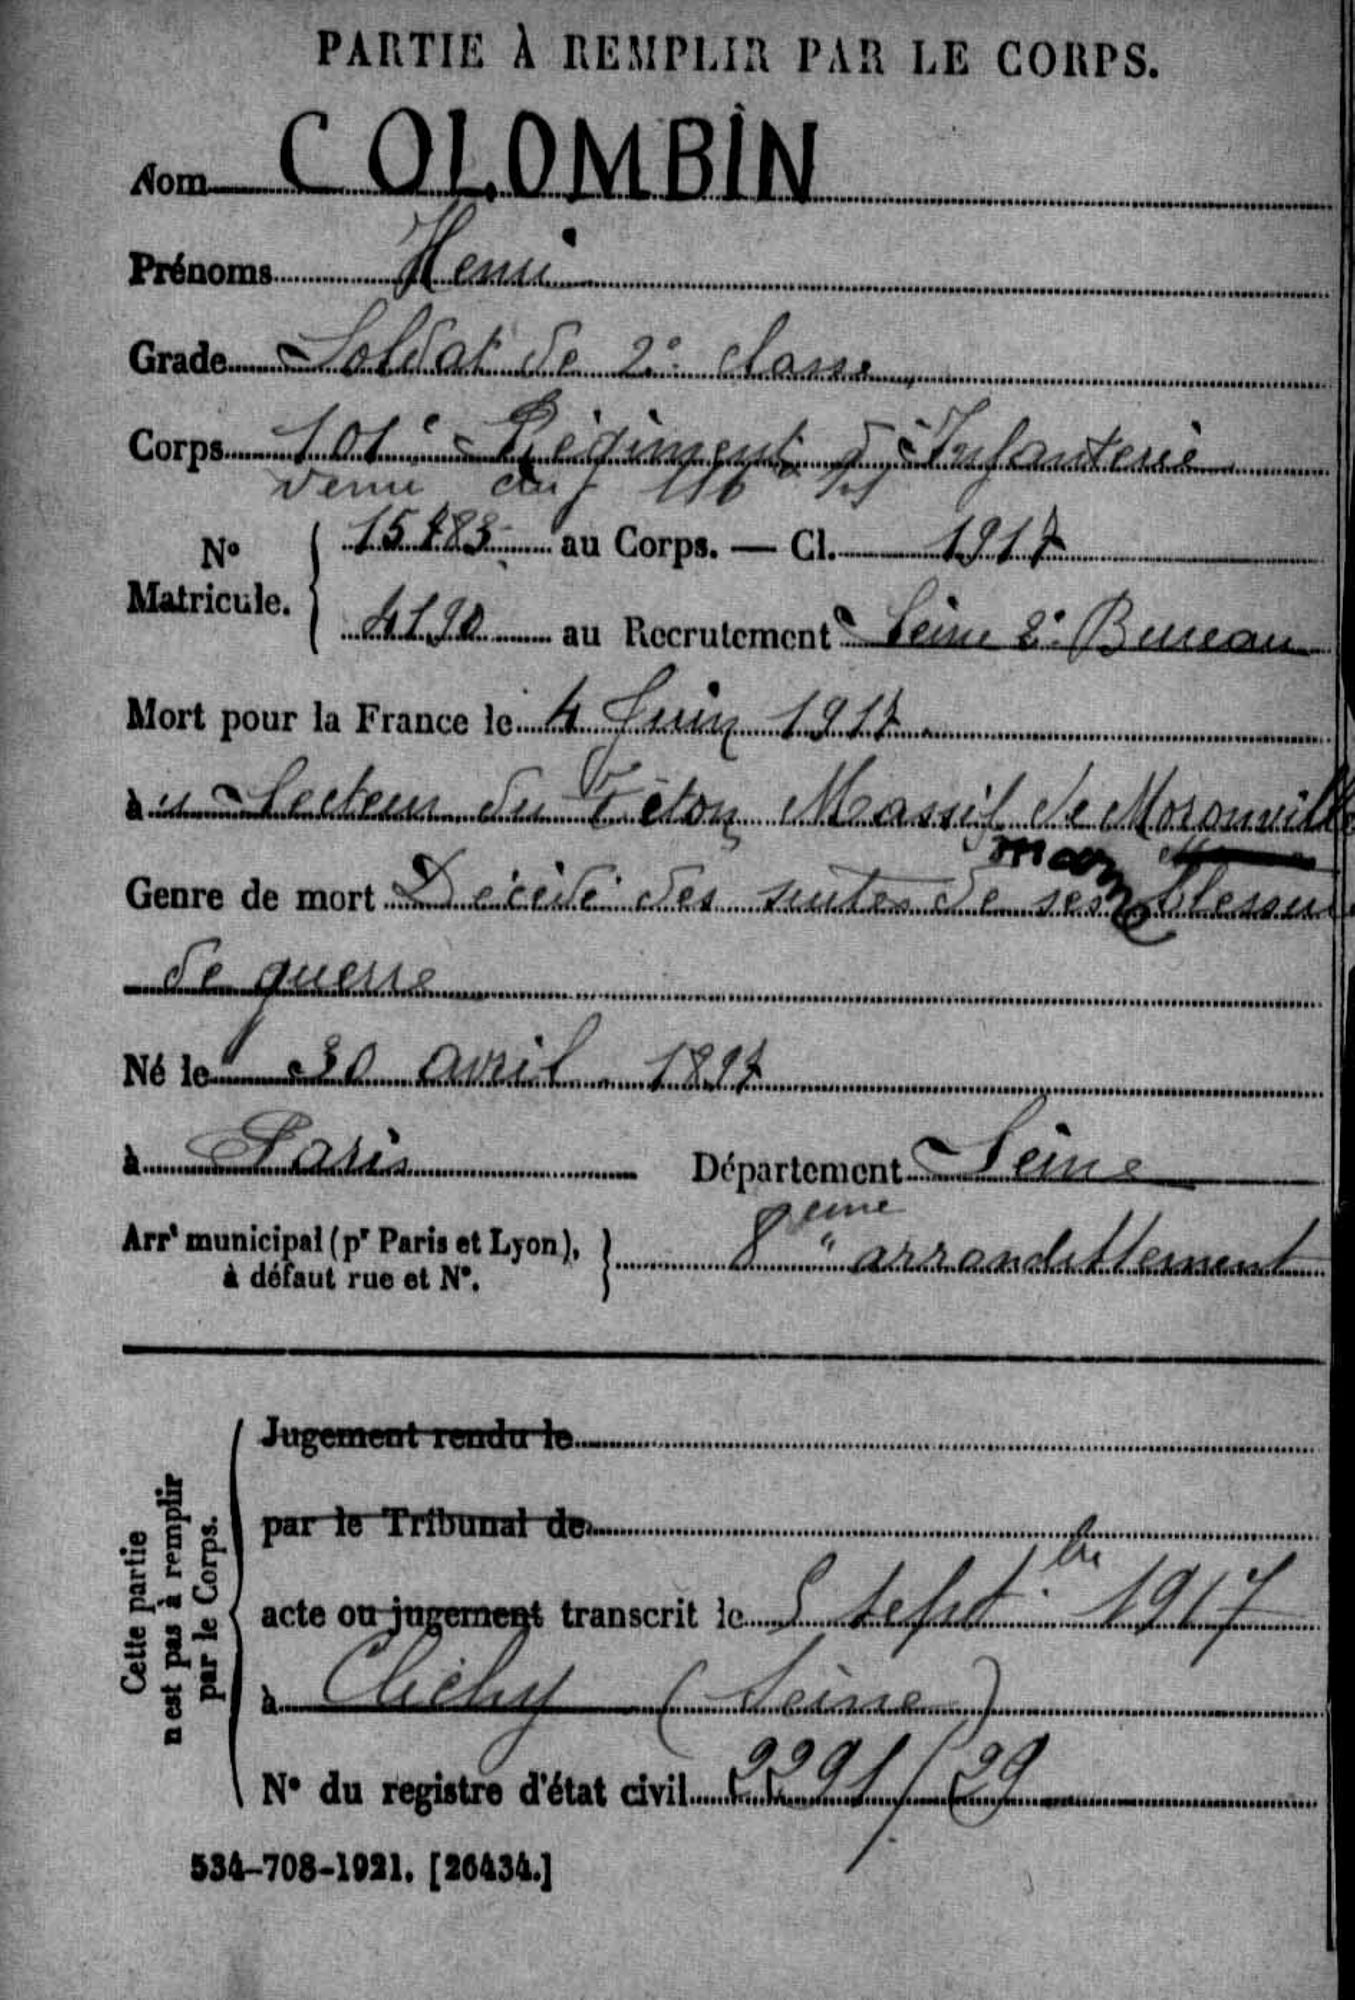 PARTIE À REMPLIR PAR LE CORPS.
Nom COLOMBIN
Prénoms Henri
Grade Soldat de 2e classe
Corps 101e Régiment d'Infanterie
venu du 116
N° Matricule. 15483 au Corps. — Cl. 1917
4190 au Recrutement Seine 2e Bureau
Mort pour la France le 4 Juin 1917
à u Secteur du Téton Massif de Moronville
marne
Genre de mort Décédé des suites de ses blessu
de guerre
Né le 30 avril 1897
à Paris Département Seine
Arrt municipal (pr Paris et Lyon), à défaut rue et N°. 8eme arrondissement
Jugement rendu le
par le Tribunal de
acte ou jugement transcrit le 5 septbre 1917
à Clichy (Seine)
N° du registre d'état civil 2291/29
Cette partie
n'est pas à remplir
par le Corps.
534-708-1921. [26434.]